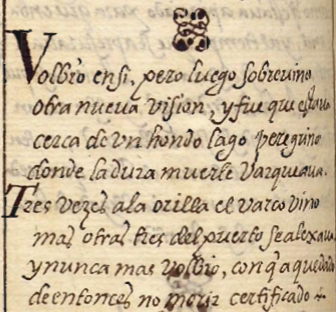 Volbio en si, pero luego sobrevino
otra nueva vision, y fue que estava
cerca de un hondo lago peregrino
donde la dura muerte varqueava.
Tres vezes a la orilla el varco vino
mas otras tres del puerto se alexava
y nunca mas volbio, con q̃ a quedado
de entonces no morir certificado